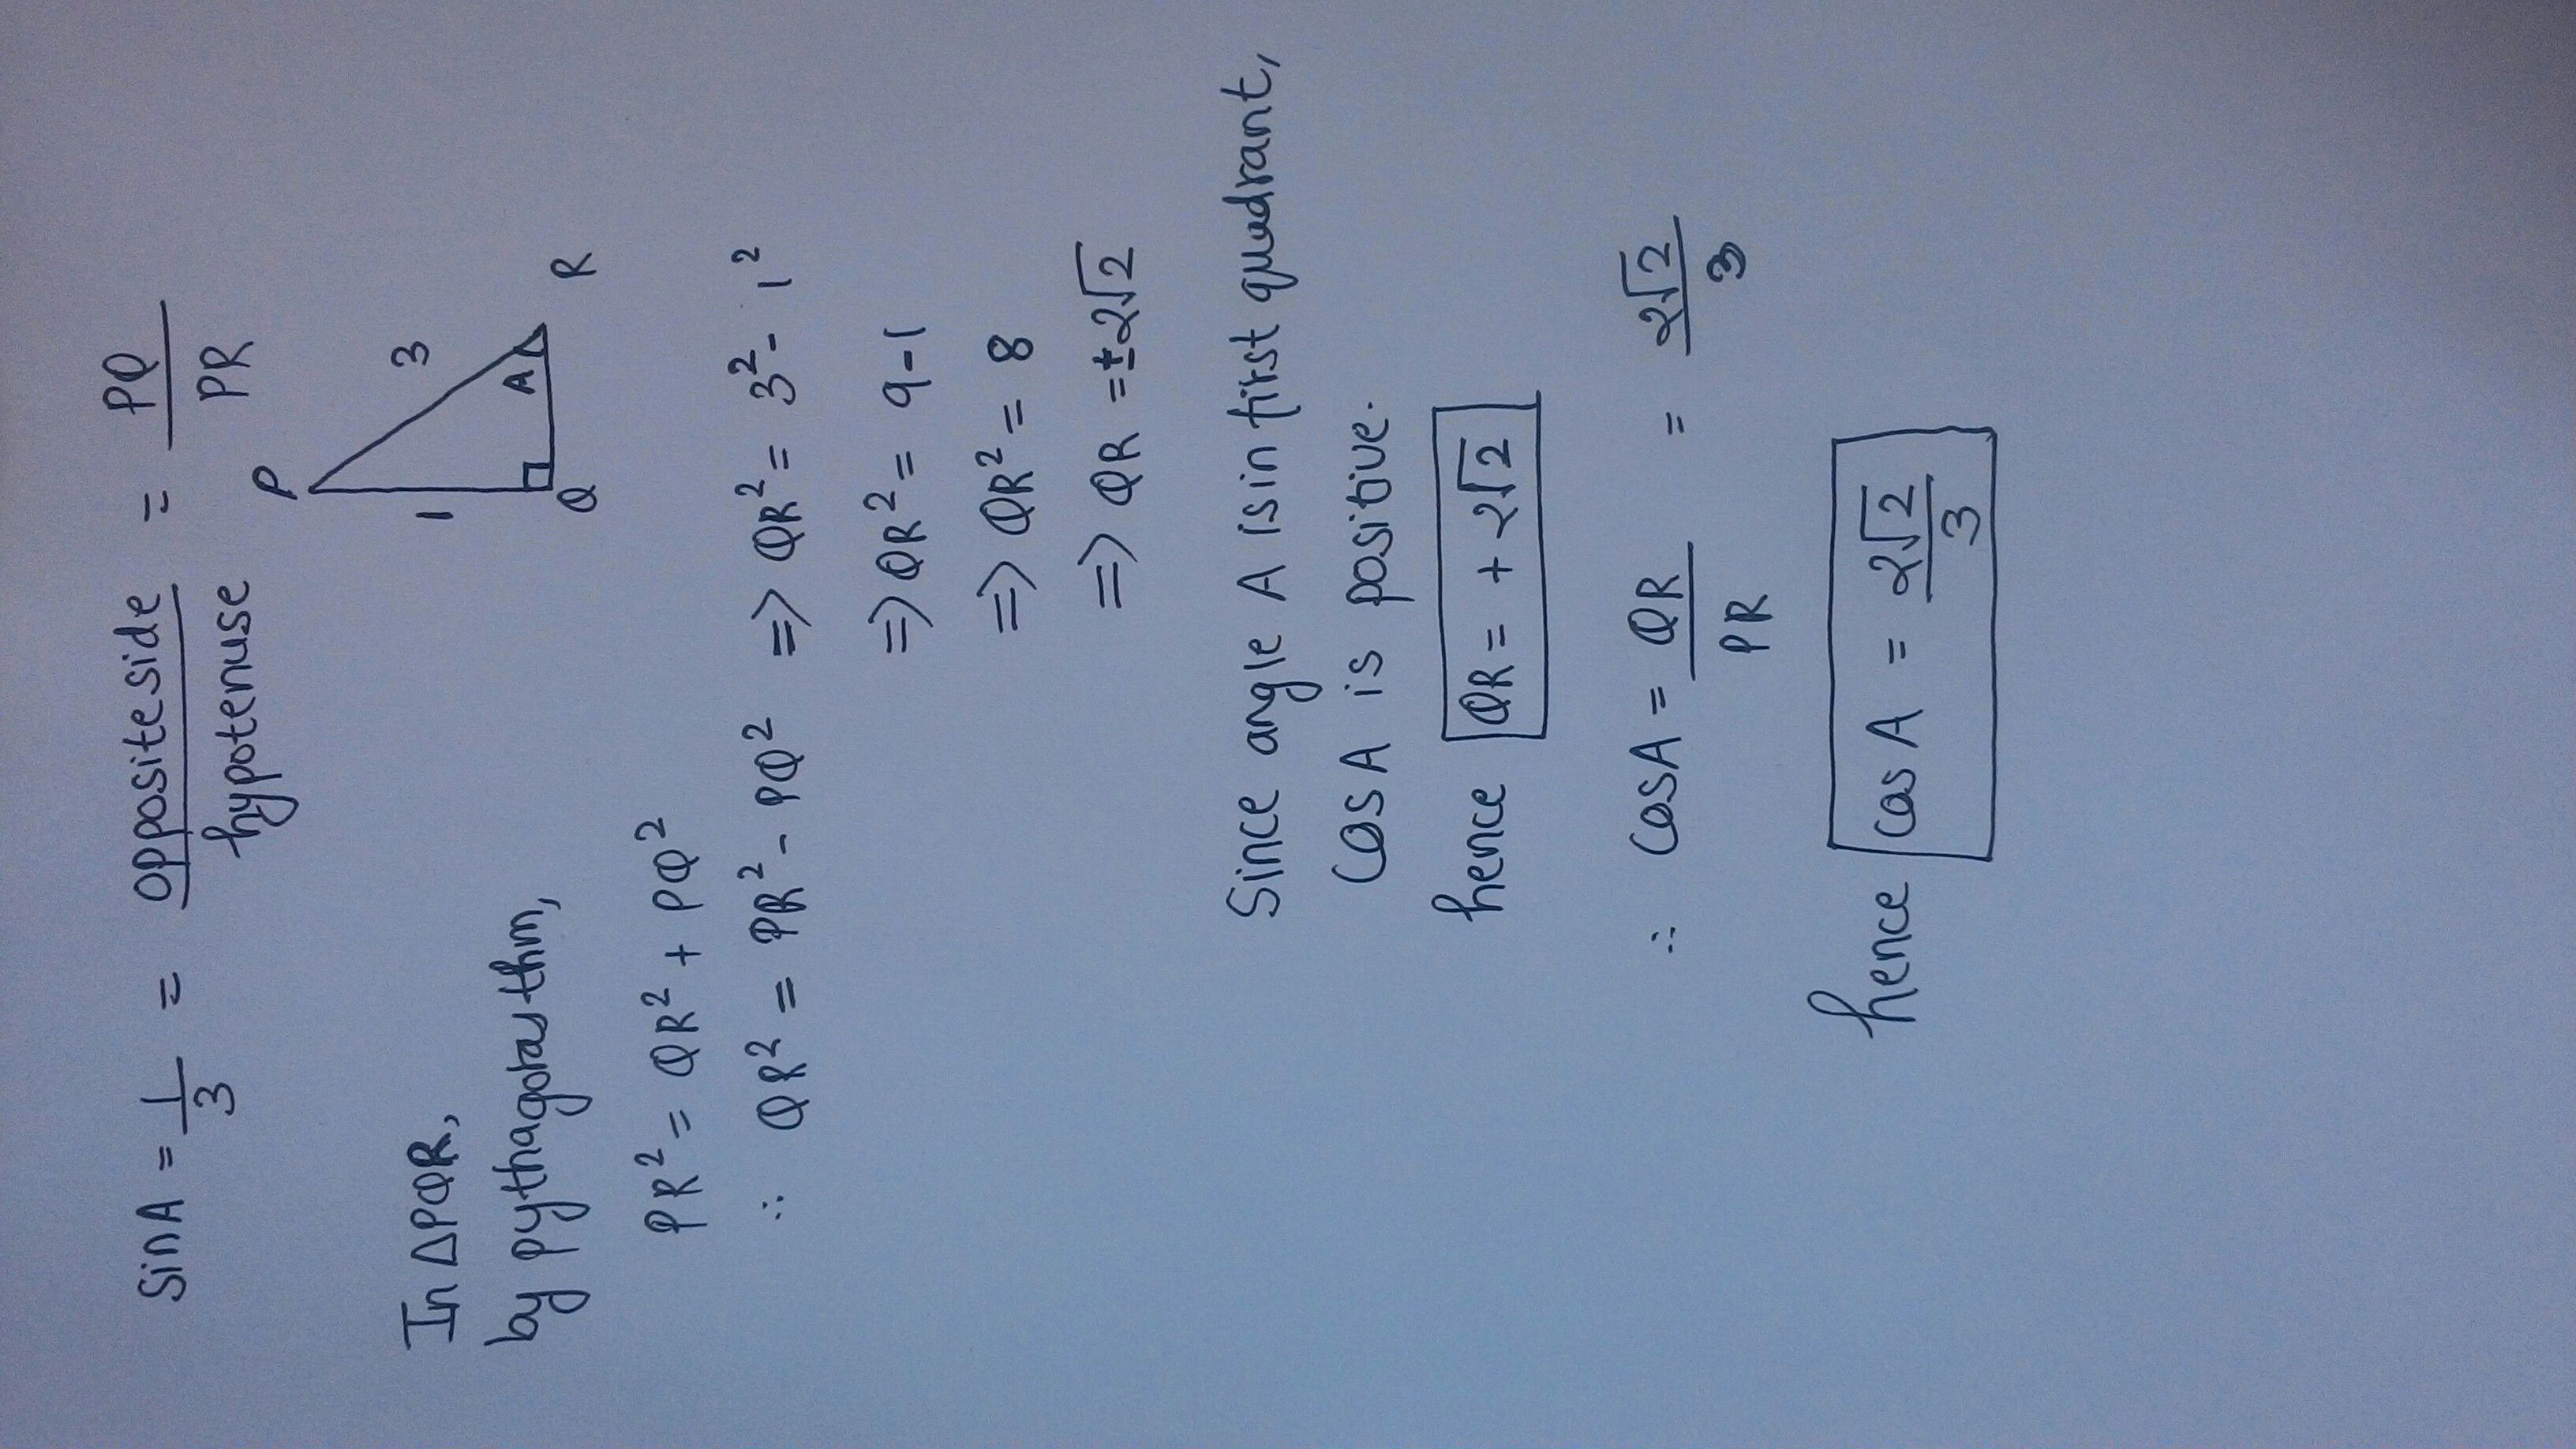 sinA = 1/3 = opposite side/hypotenuse = PQ/PR
P
1
3
A
Q
R
In ΔPQR,
by pythagoras thm,
PR² = QR² + PQ²
∴ QR² = PR² - PQ² => QR² = 3² - 1²
=> QR² = 9-1
=> QR² = 8
=> QR = ±2√2
Since angle A is in first quadrant,
cos A is positive.
hence QR = +2√2
∴ cosA = QR/PR = 2√2/3
hence cos A = 2√2/3